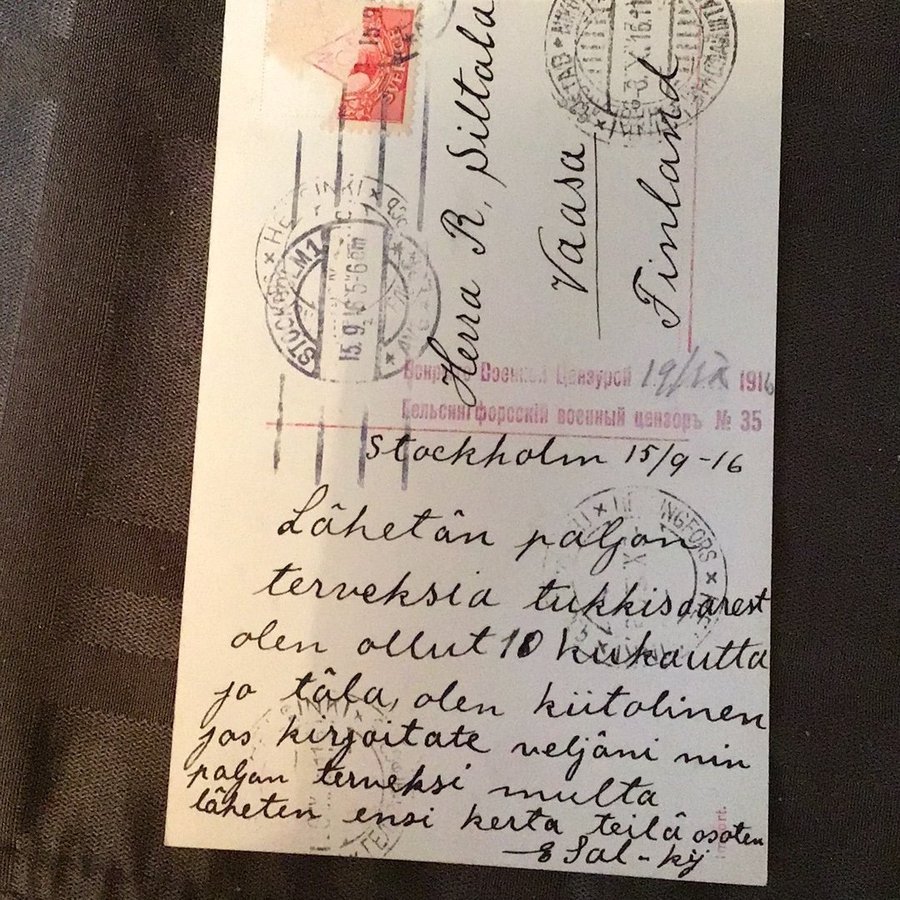 SVERIGE
Herra R. Siltala
Vaasa
Finland
STOCKHOLM 1
15.9.16 5-6 em
HELSINKI
Военной Цензурой 19/IX 1916
Гельсингфорсскій военный цензоръ № 35
Stockholm 15/9-16
Lähetän paljon
terveksia tukkisaarest
olen ollut 10 kukautta
jo tälä, olen kiitolinen
jos kirjoitate veljäni nin
paljan terveksi multa
läheten ensi kerta teilä osoten
E Sal-kij